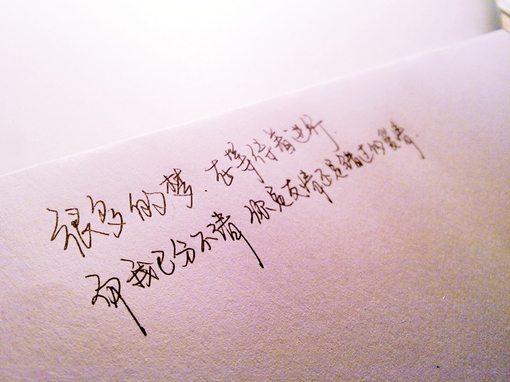 很多的梦.在等待着进行.
而我已分不清 你是友情 还是错过的爱情.